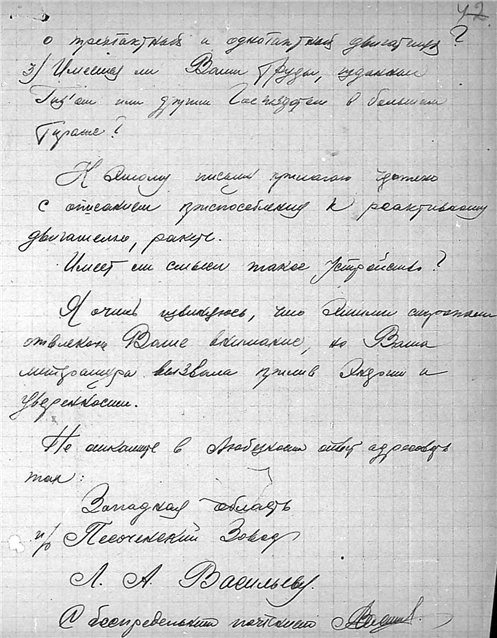 42.
о трехтактный и однотактный двигатель?
3) Имеются ли Ваши труды, изданные
Гиз'ом или другим в большом
тираже?
К этому письму прилагаю
с описанием приспособления к реактивному
двигателю, ракете.
Имеет ли смысл такое устройство?
Я очень извиняюсь, что этими строками
отвлекаю Ваше внимание, но Ваша
литература вызвала прилив энергии и
уверенности.
Не откажите в любезности ответ адресовать
так:
Западная область
п/о Песоченский Завод
Л. А. Васильеву.
С беспредельным почтением